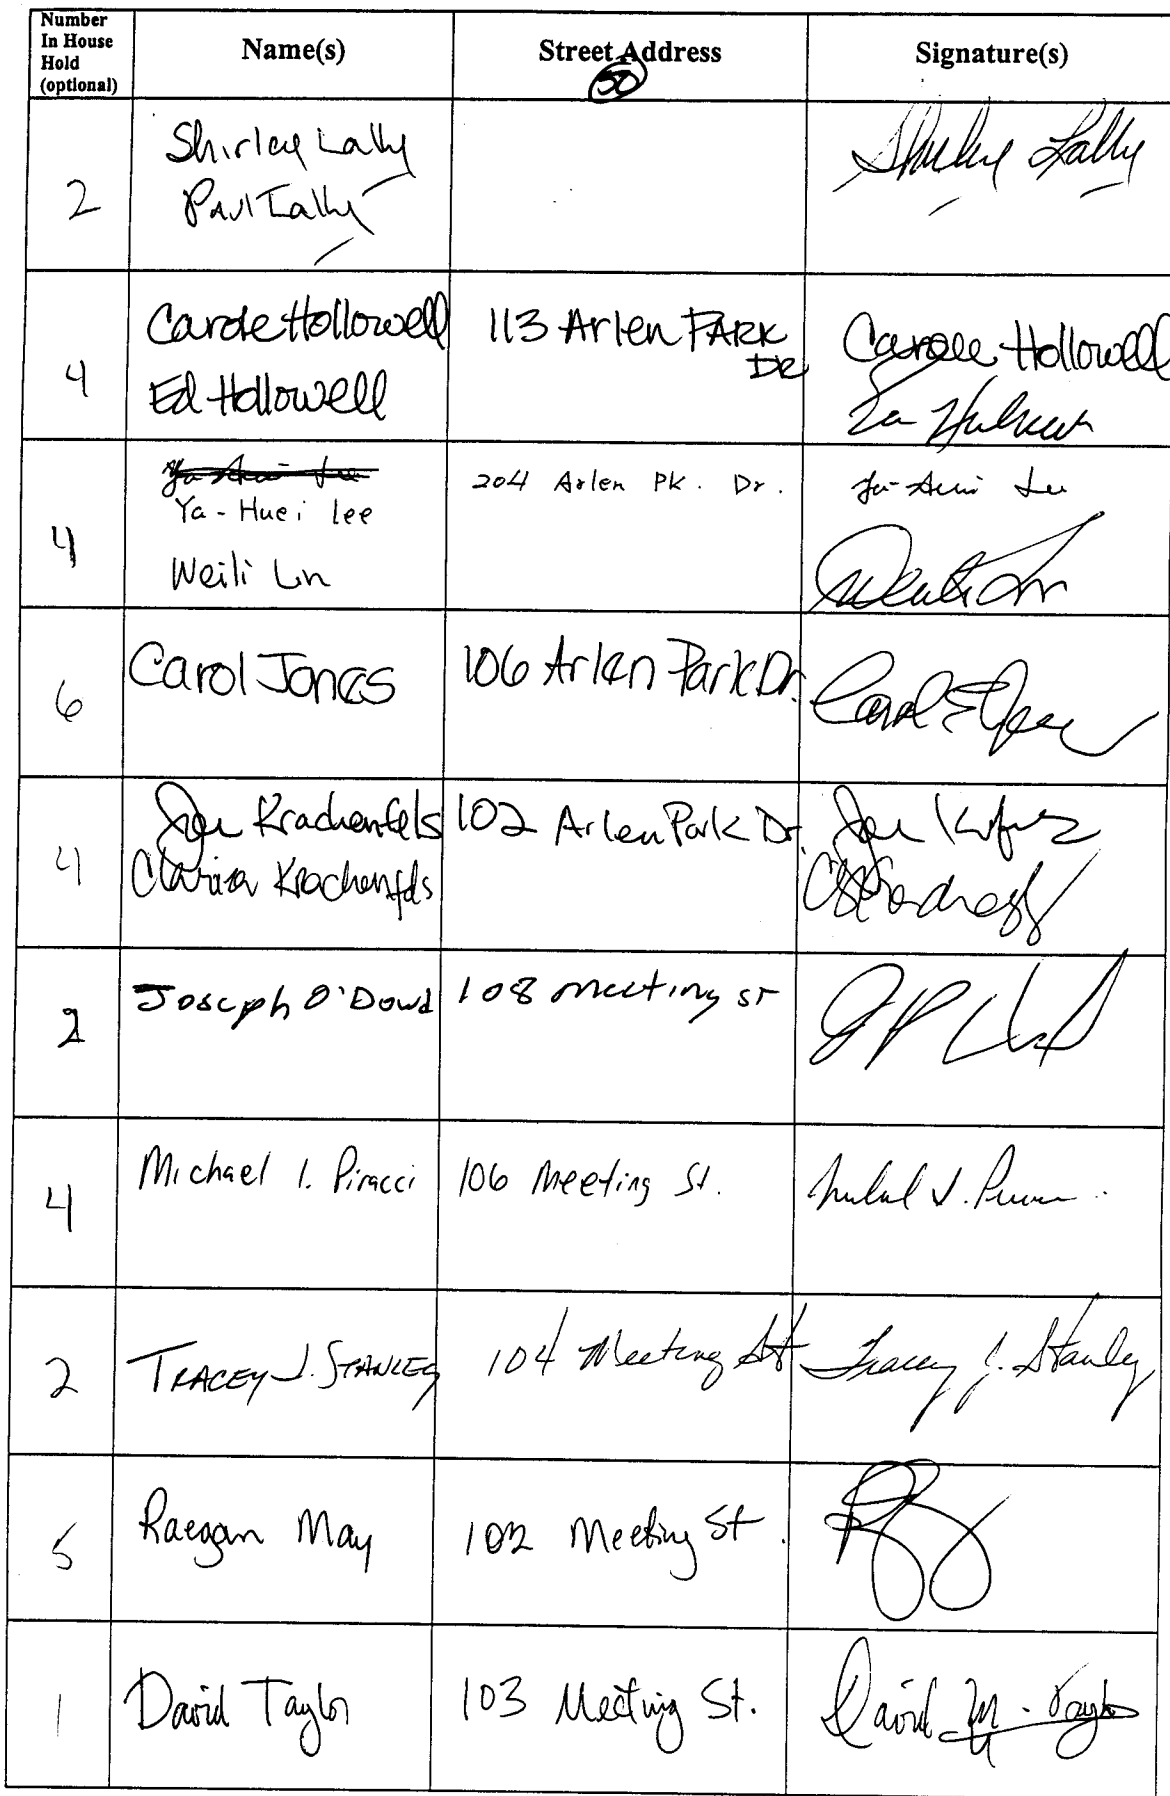 Number In House Hold (optional)
Name(s)
Street Address
50
Signature(s)
2
Shirley Lally
Paul Lally
Shirley Lally
4
Carole Hollowell
Ed Hollowell
113 Arlen PARK
DR
Carole Hollowell
4
Ya-Huei Lee
Weili Lin
204 Arlen Pk. Dr.
Ya-Huei Lee
6
Carol Jones
106 Arlen Park Dr.
4
Joe Krachenfels
Clarisa Krachenfels
102 Arlen Park Dr.
2
Joseph O'Dowd
108 Meeting ST
4
Michael I. Piracci
106 Meeting St.
2
TRACEY J. STANLEY
104 Meeting St
Tracey J. Stanley
5
Raegan May
102 Meeting St.
1
David Taylor
103 Meeting St.
David M. Taylor